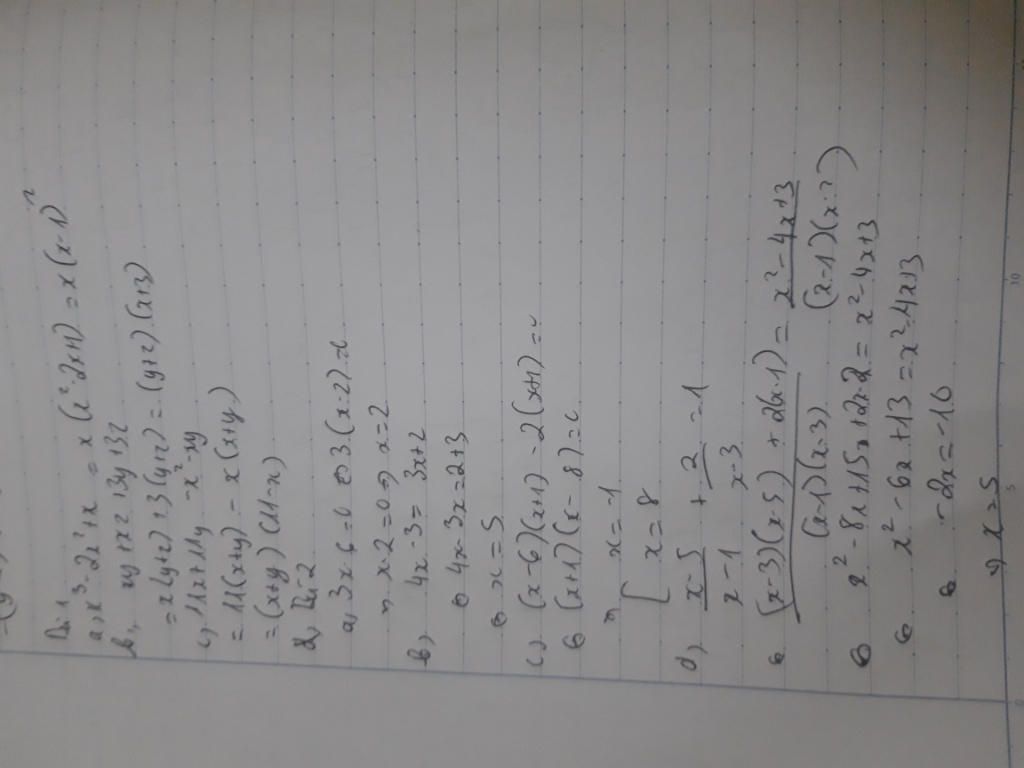 Bài 1
a, x³-2x²+x = x(x²-2x+1) = x(x-1)²
b, xy+xz+3y+3z
= x(y+z)+3(y+z) = (y+z)(x+3)
c, 11x+11y -x²-xy
= 11(x+y) - x(x+y)
= (x+y)(11-x)
2, Bài 2
a, 3x-6=0 ⇔ 3(x-2)=0
⇒ x-2=0 ⇒ x=2
b, 4x-3= 3x+2
⇔ 4x-3x=2+3
⇔ x=5
c, (x-6)(x+1) -2(x+1)=0
⇔ (x+1)(x-8)=0
⇒ [ x=-1
x=8
d, x-5/x-1 + 2/x-3 = 1
⇔ (x-3)(x-5)+2(x-1)/(x-1)(x-3) = x²-4x+3/(x-1)(x-3)
⇔ x²-8x+15+2x-2= x²-4x+3
⇔ x²-6x+13=x²-4x+3
⇔ -2x=-10
⇒ x=5